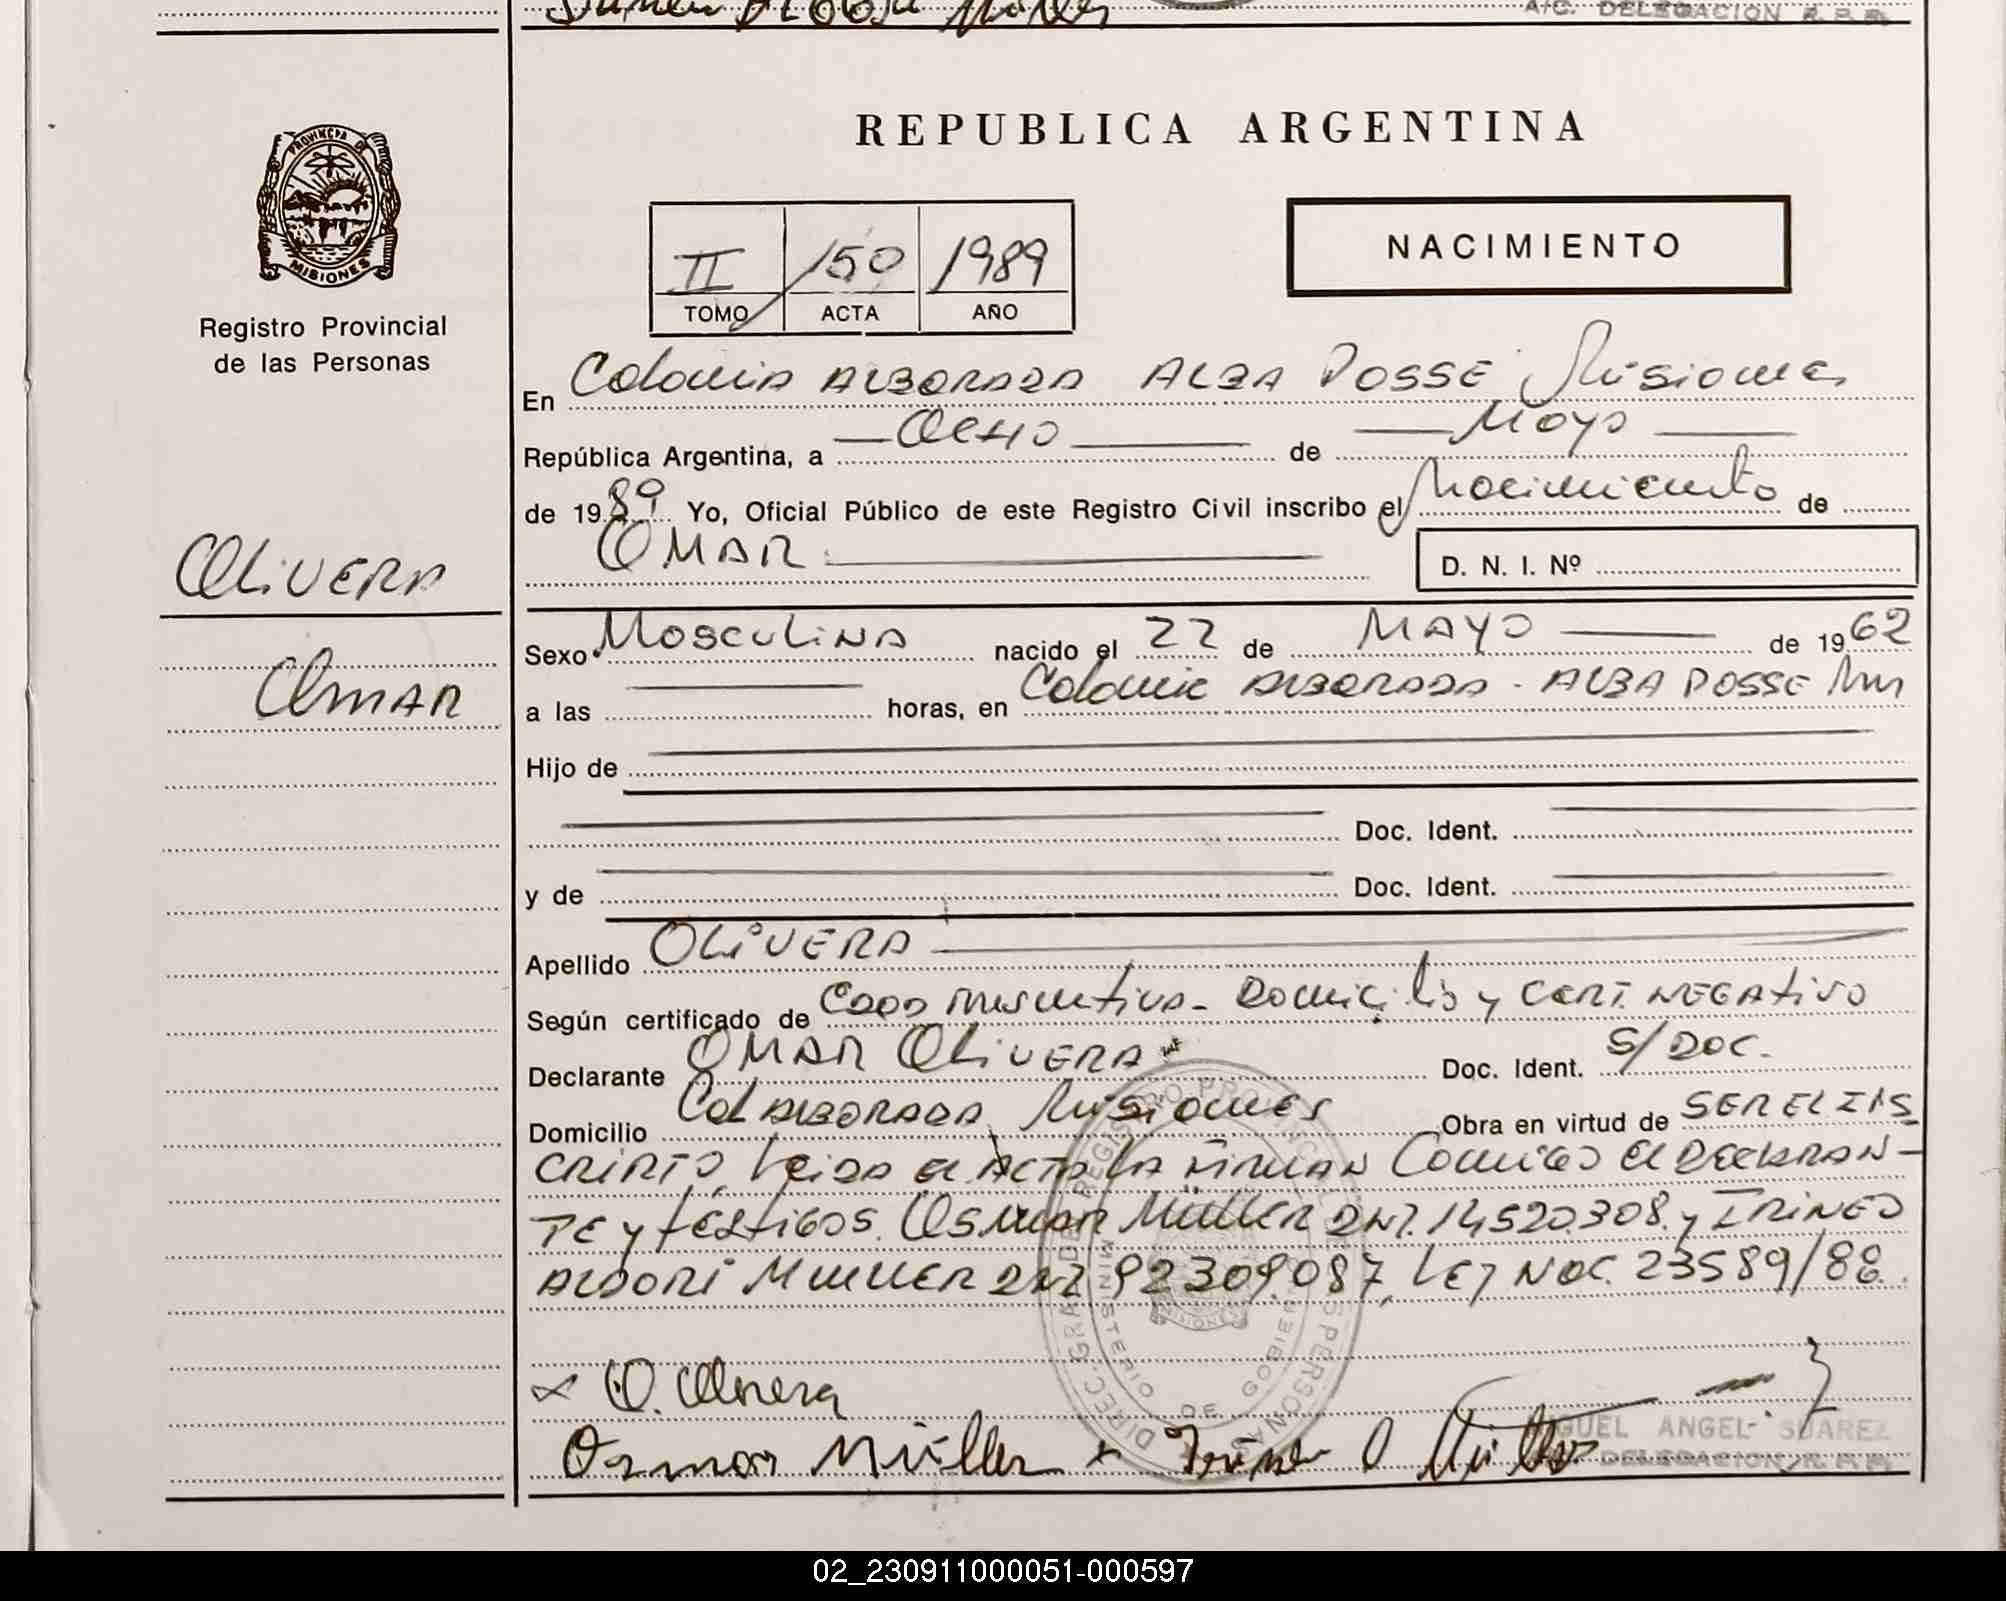 A/C. DELEGACION R. P. P.
REPUBLICA ARGENTINA
PROVINCIA DE
MISIONES
Registro Provincial
de las Personas
II 150 1989
TOMO ACTA AÑO
NACIMIENTO
En Colonia ALBORADA ALBA POSSE Misiones
República Argentina, a OCHO de Mayo
de 1989 Yo, Oficial Público de este Registro Civil inscribo el Nacimiento de
OMAR
D. N. I. Nº
OLIVERA
OMAR
Sexo MASCULINO nacido el 22 de MAYO de 1962
a las horas, en Colonia ALBORADA - ALBA POSSE Mnes
Hijo de
Doc. Ident.
y de Doc. Ident.
Apellido OLIVERA
Según certificado de Domicilio y CERT. NEGATIVO
Declarante OMAR OLIVERA Doc. Ident. S/DOC.
Domicilio Col ALBORADA Misiones Obra en virtud de SER EL INS
CRIPTO, Leida el ACTA LA FIRMAN Conmigo el DECLARAN-
TE y testigos. OSMAR MULLER DNI. 14520.308. y IRINEO
ALDORI MULLER DNI 92309.087, LEY NAC. 23589/88.
O. Olivera
Osmar Müller x Irineo A Müller
MIGUEL ANGEL SUAREZ
DELEGACION R. P. P.
DIREC. GRAL DE REGISTRO PROVINCIAL DE LAS PERSONAS
MINISTERIO DE GOBIERNO
MISIONES
02_230911000051-000597